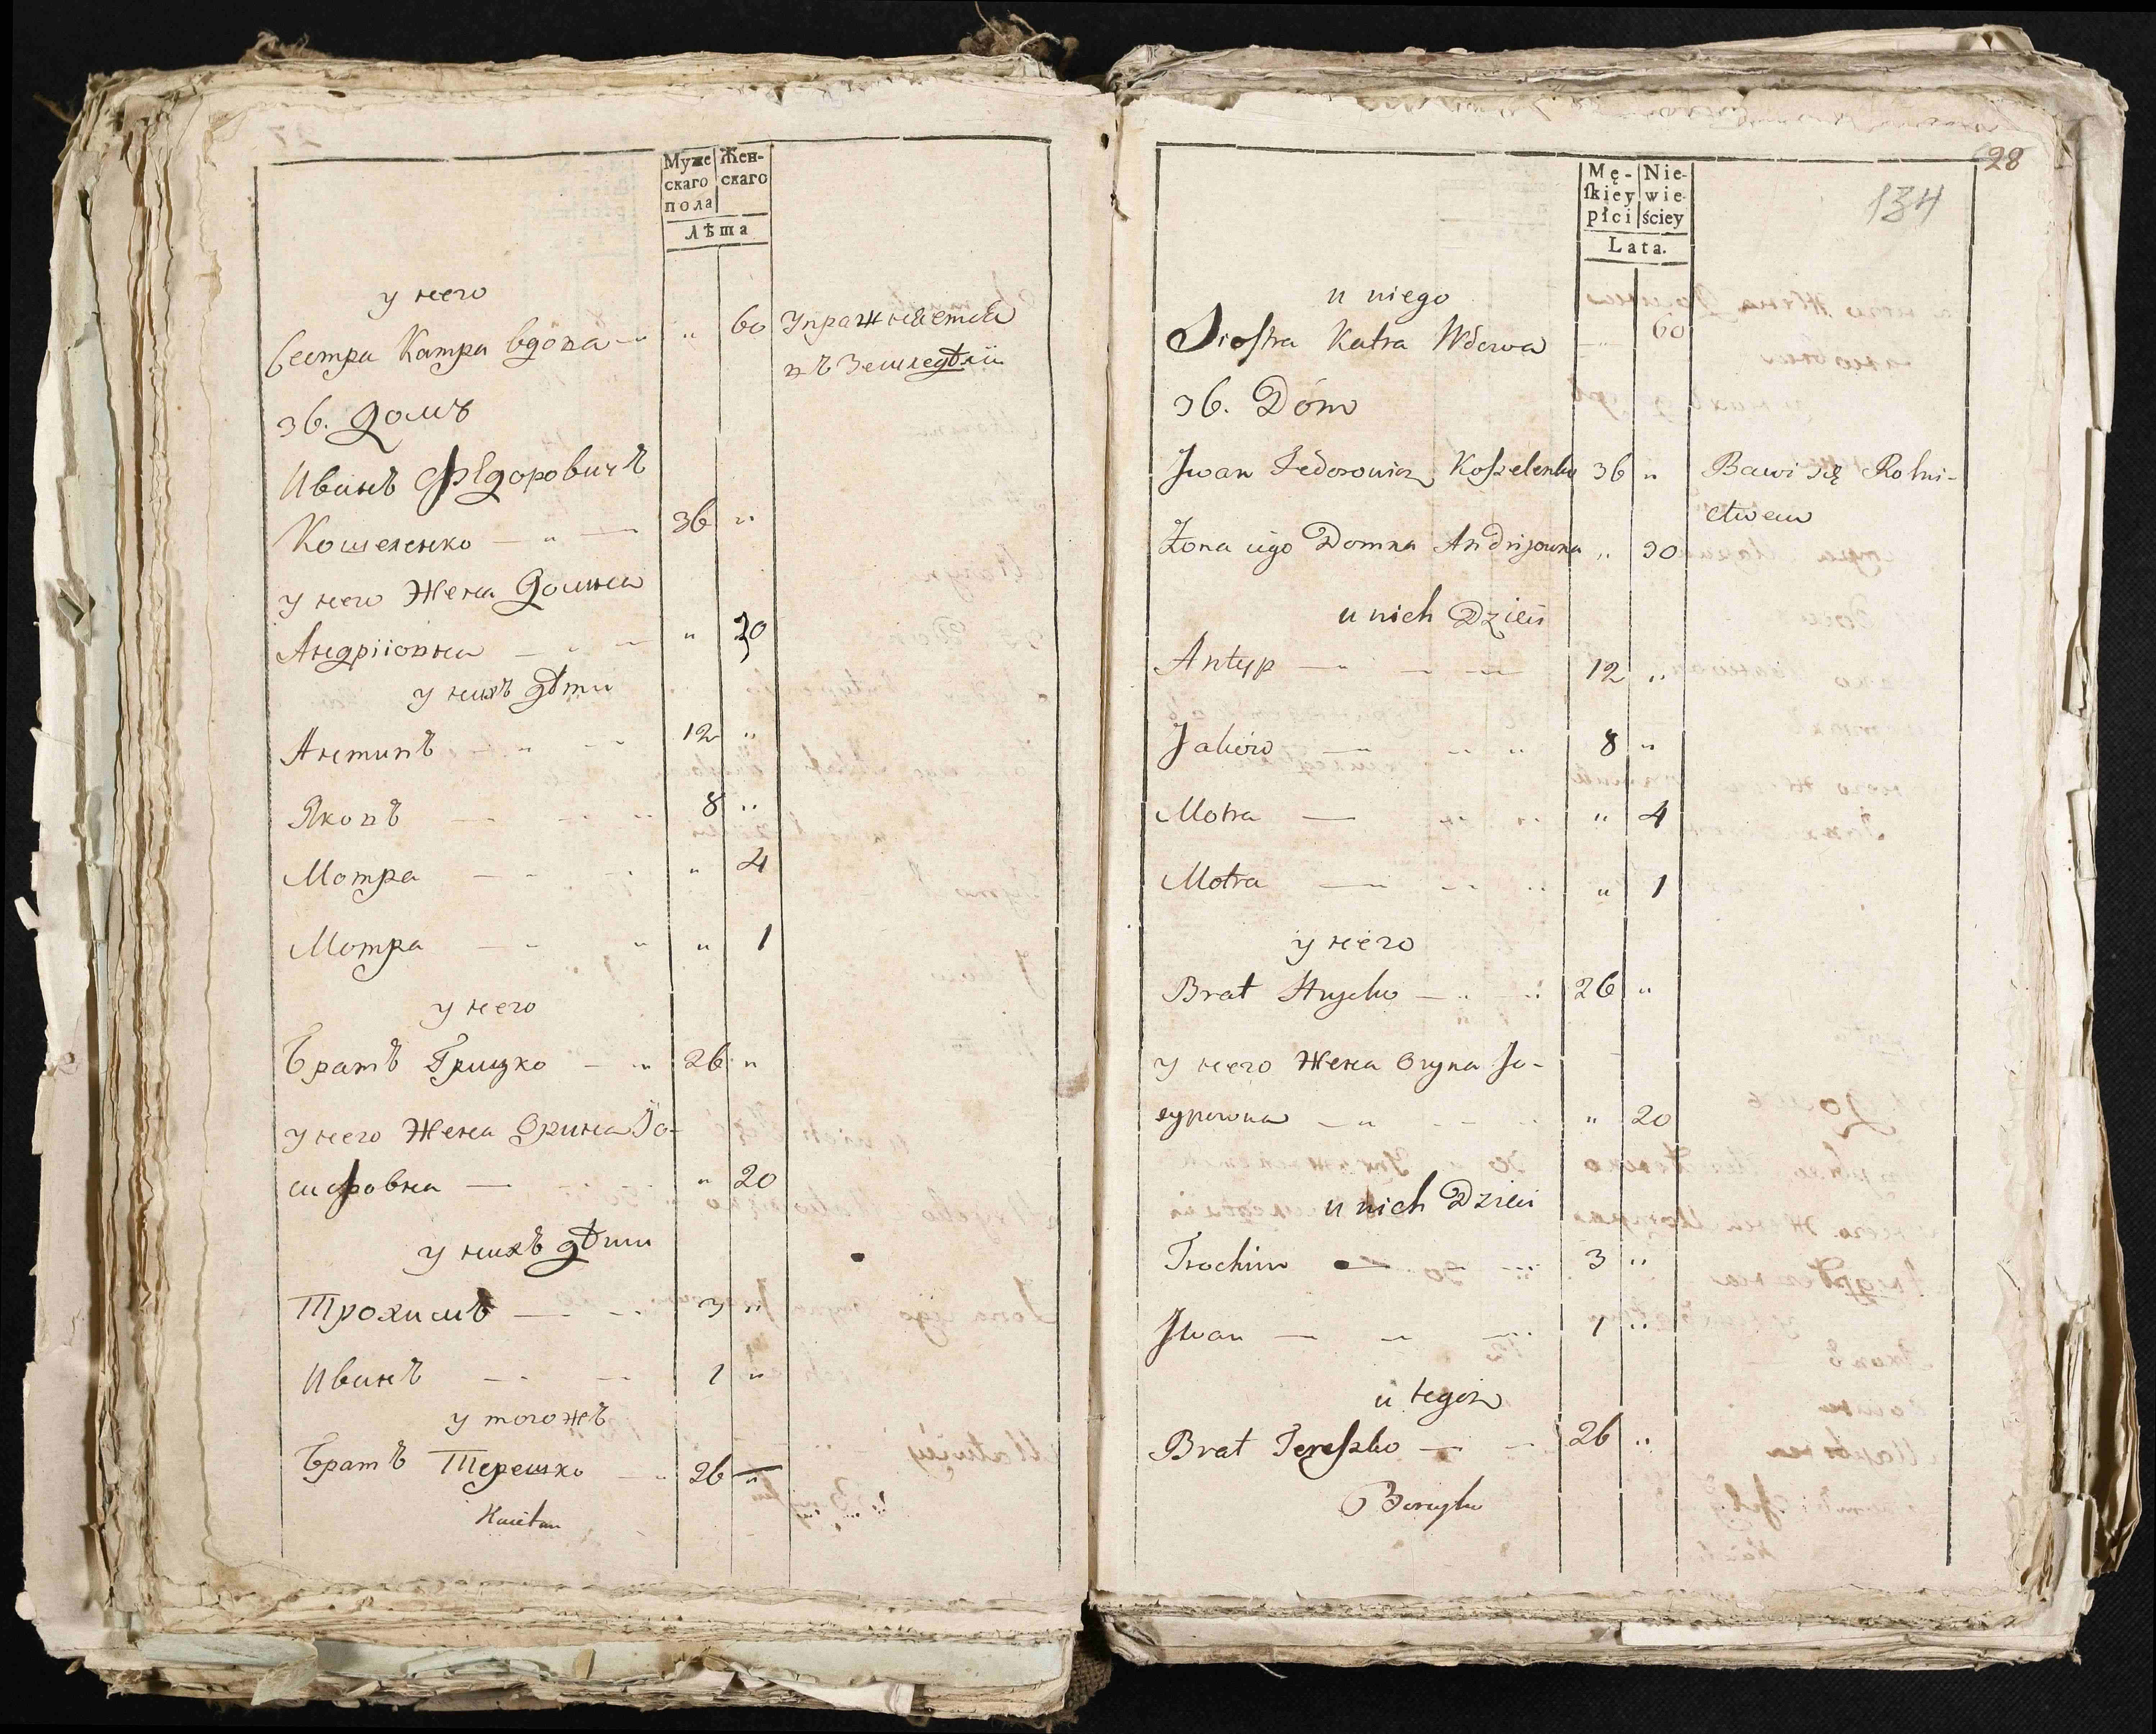 Муже Жен-
скаго скаго
пола
Лѣта
у него
Сестра Катра вдова — " " 60 Упражняется
въ Земледѣлїи
36. Домъ
Иванъ Фѣдоровичъ
Кошеленко — " — 36 "
у него Жена Домна
Андрііовна — " — " 30
у нихъ дѣти
Антипъ — " — 12 "
Яковъ — — " 8 "
Мотра — — " " 4
Мотра — " " " 1
у него
Братъ Грицко — " 26 "
у него Жена Орина Іо-
сифовна — " 20
у нихъ дѣти
Трохимъ — — 3 "
Иванъ — — 1 "
у тогожъ
Братъ Терешко — " 26 "
28
134
Mę- Nie-
ſkiey wie-
płci ściey
Lata.
u niego
Siostra Katra Wdowa — 60
36. Dóm
Jwan Fedorowicz Koszelenko 36 " Bawi się Rolni-
ctwem
Żona iego Domna Andrijowna " 30
u nich Dzieci
Antyp — " — 12 "
Jaków — " " 8 "
Motra — " " " 4
Motra — " " " 1
у него
Brat Hrycko — " — 26 "
у него Жена Oryna Jo-
sypowna — " — " 20
u nich Dzieci
Trochim — — 3 "
Jwan — — — 1 "
u tegoż
Brat Tereszko — — 26 "